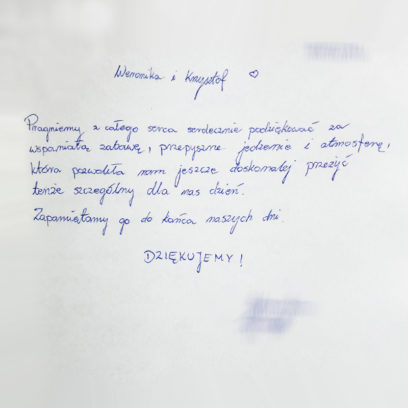 Weronika i Krzysztof ♡
Pragniemy z całego serca serdecznie podziękować za
wspaniałą zabawę, przepyszne jedzenie i atmosferę,
która pozwoliła nam jeszcze doskonalej przeżyć
tenże szczególny dla nas dzień.
Zapamiętamy go do końca naszych dni.
DZIĘKUJEMY!